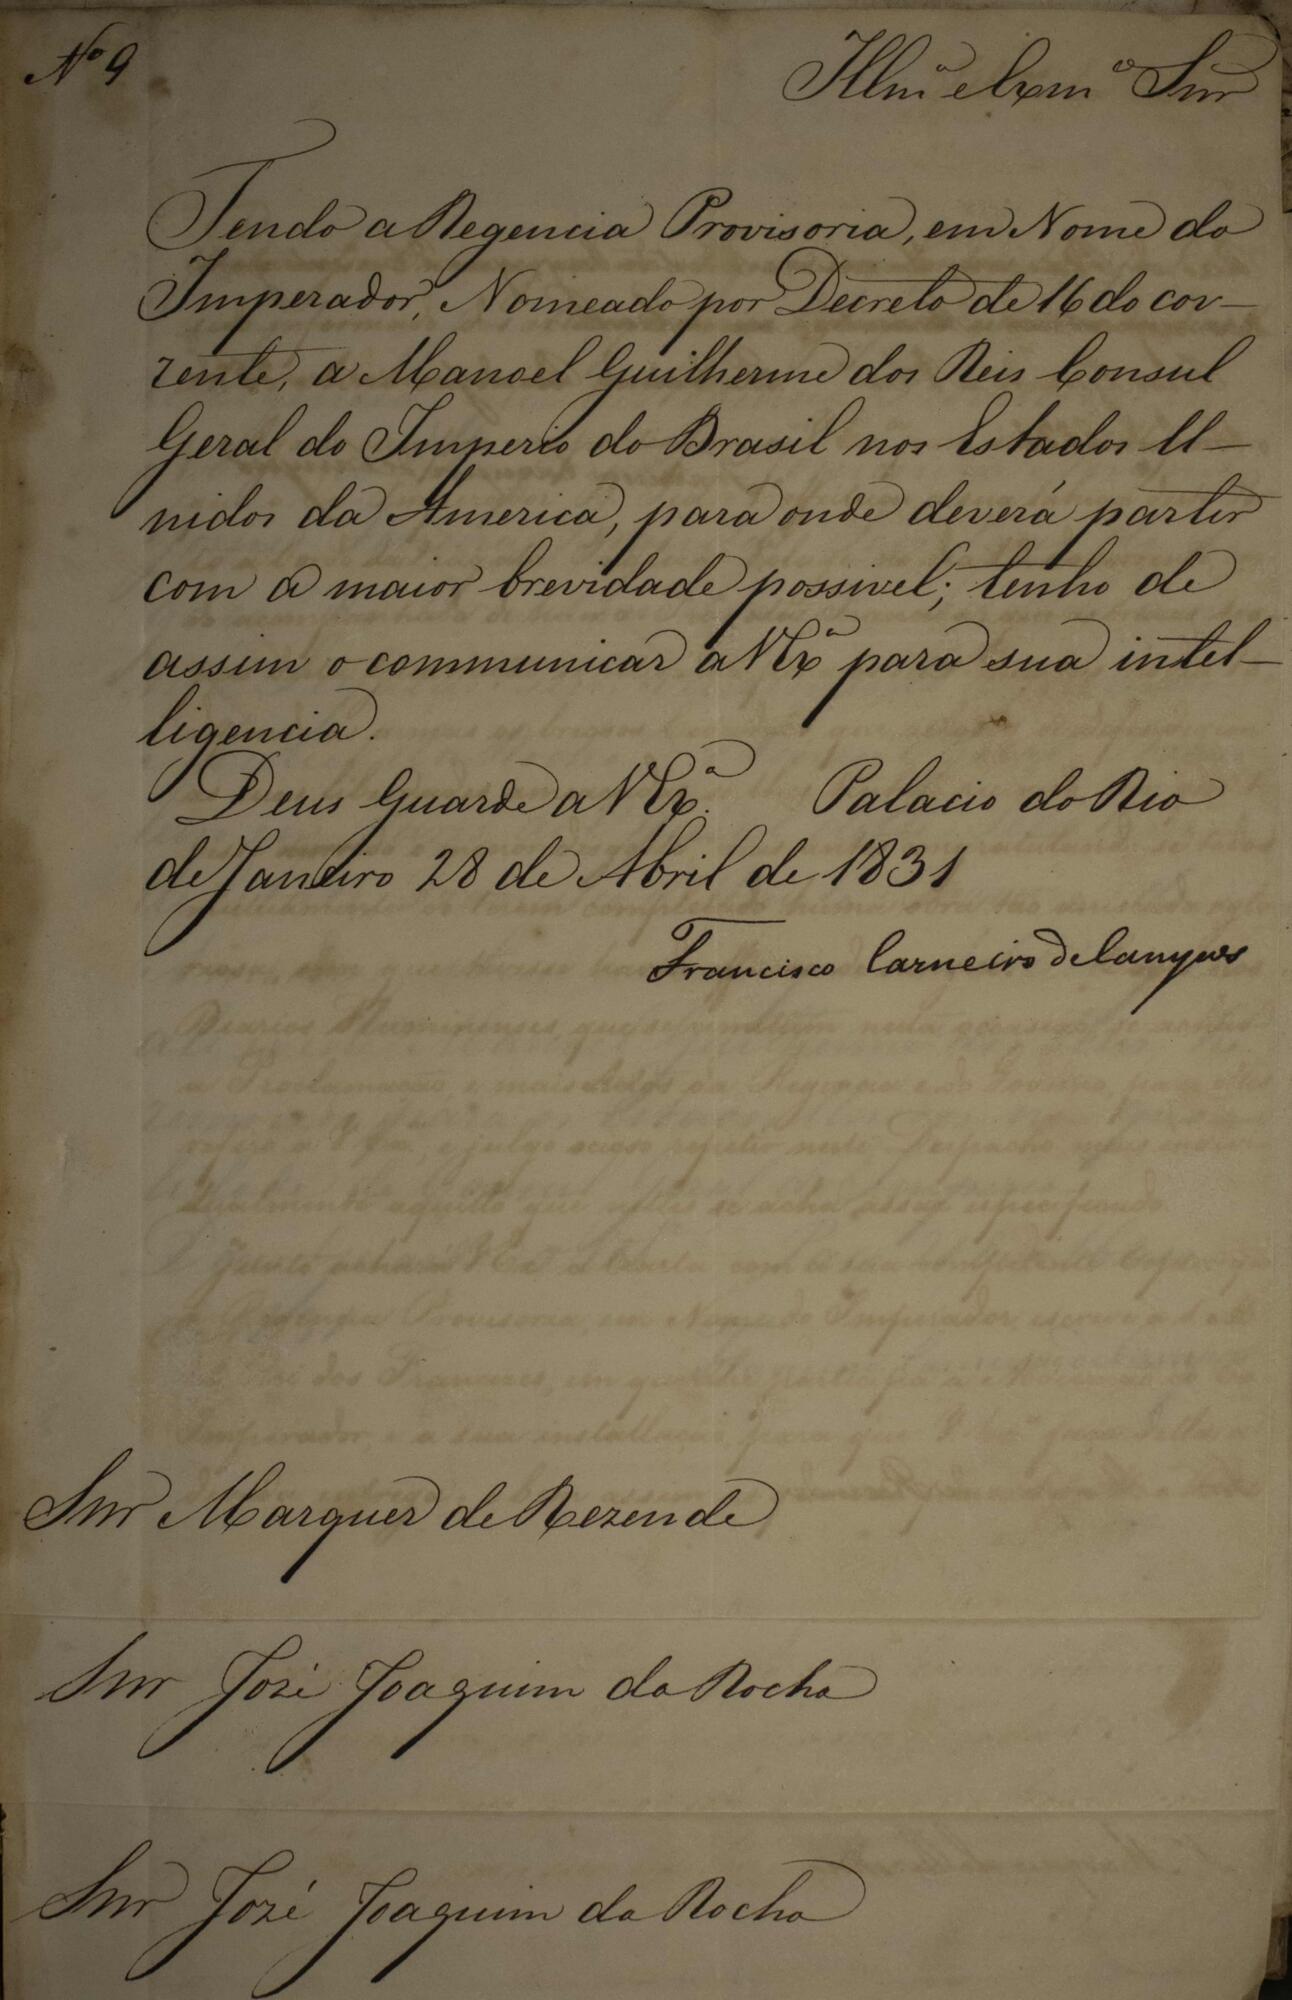 Nº 9
Illmº e Exmº Snr
Tendo a Regencia Provisoria, em Nome do
Imperador, Nomeado por Decreto de 16 do cor-
rente, a Manoel Guilherme dos Reis Consul
Geral do Imperio do Brasil nos Estados U-
nidos da America, para onde deverá partir
com a maior brevidade possivel; tenho de
assim o communicar a V Exª para sua intel-
ligencia.
Deus Guarde a V Exª. Palacio do Rio
de Janeiro 28 de Abril de 1831
Francisco Carneiro de Campos
Snr Marquez de Rezende
Snr José Joaquim da Rocha
Snr José Joaquim da Rocha